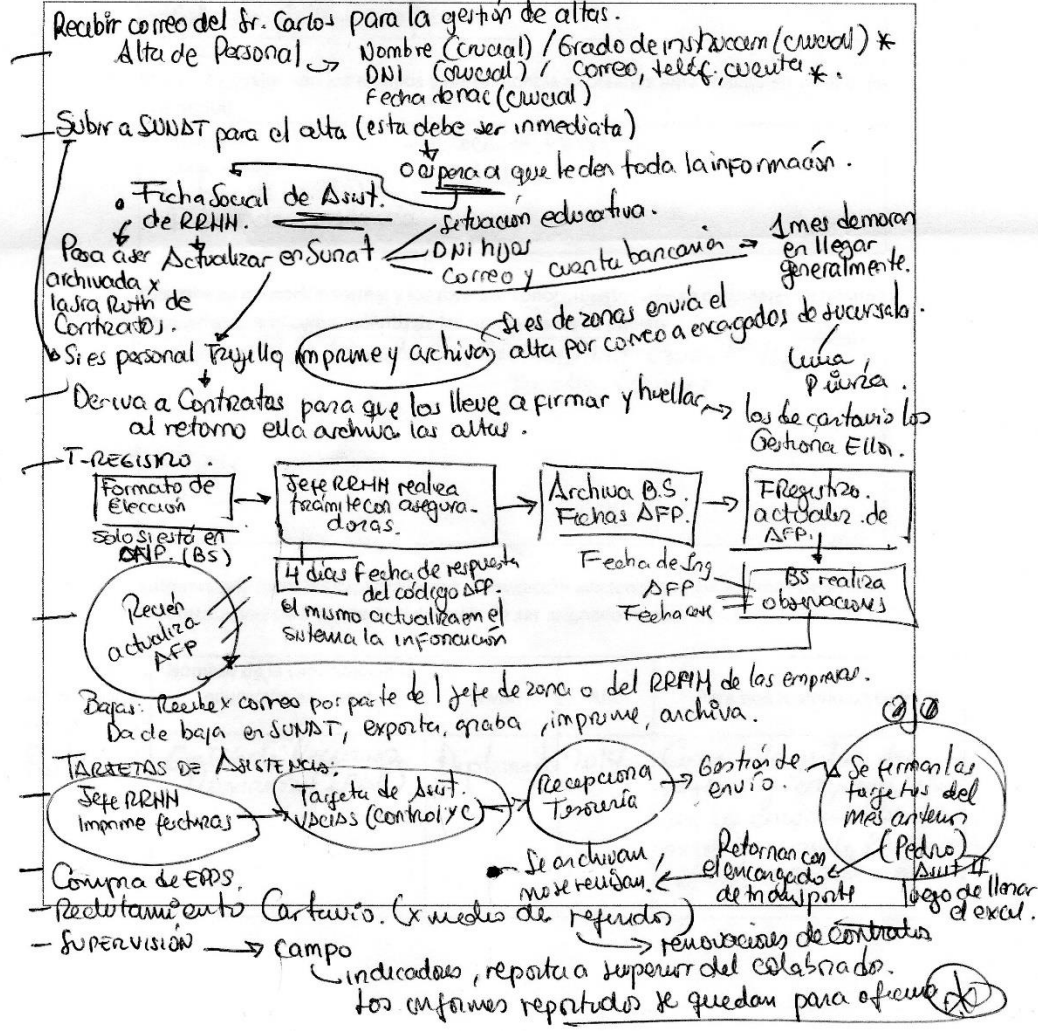 Recibir correo del Sr. Carlos para la gestión de altas.
Alta de Personal → Nombre (crucial) / Grado de instruccion (crucial) *
DNI (crucial) / correo, teléf, cuenta *.
Fecha de nac (crucial)
Subir a SUNAT para el alta (esta debe ser inmediata)
o espera a que le den toda la información.
• Ficha Social de Asist.
de RRHH.
Situación educativa.
Pasa a ser Actualizar en Sunat
DNI hijos
Correo y cuenta bancaria → 1 mes demoran
en llegar
generalmente.
archivada x
la sra Ruth de
Contratos.
Si es de zonas envía el
Si es personal Trujillo imprime y archiva, alta por correo a encargados de sucursales.
Lima,
Piura.
Deriva a Contratos para que los lleve a firmar y huellar → los de cartavio los
al retorno ella archiva las altas.
Gestiona Ella.
T-REGISTRO.
Formato de
Elección
Jefe RRHH realiza
trámite con asegura-
doras.
Archiva B.S.
Fichas AFP.
T Registro.
actualiz. de
AFP.
solo si está en
(BS)
4 días fecha de respuesta
del código AFP.
el mismo actualiza en el
sistema la información
Fecha de Ing
AFP
Fecha
BS realiza
observaciones
Recién
actualiza
AFP
Bajas: Recibe x correo por parte del jefe de zona o del RRHH de las empresas.
Da de baja en SUNAT, exporta, graba, imprime, archiva.
TARJETAS DE ASISTENCIA.
Jefe RRHH
imprime fecturas
Tarjeta de Asist.
VACIAS (Control y C)
Recepciona
Tesorería
Gestión de
envío.
Se firman las
tarjetas del
mes anterior
(Pedro)
Asist II
luego de llenar
el excel.
Retornan con
el encargado
de transporte
Se archivan,
no se revisan.
- Compra de EPPS.
- Reclutamiento Cartavio. (x medio de referidos)
→ renovaciones de contratos
- SUPERVISIÓN → Campo
indicadores, reporta a superior del colaborador.
Los informes reportados se quedan para oficina